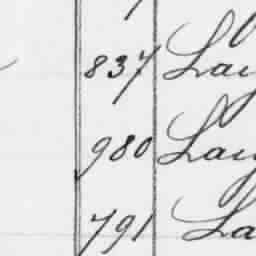 837 Lay
980 Lay
791 La